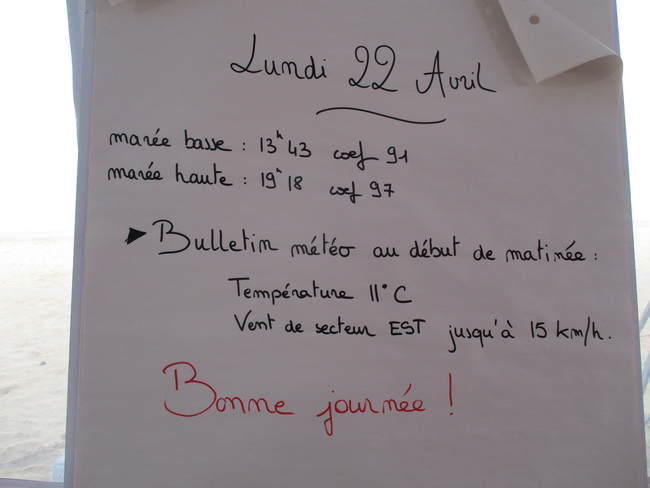 Lundi 22 Avril
marée basse : 13h43 coef 91
marée haute : 19h18 coef 97
► Bulletin météo au début de matinée :
Température 11°C
Vent de secteur EST jusqu'à 15 km/h.
Bonne journée !